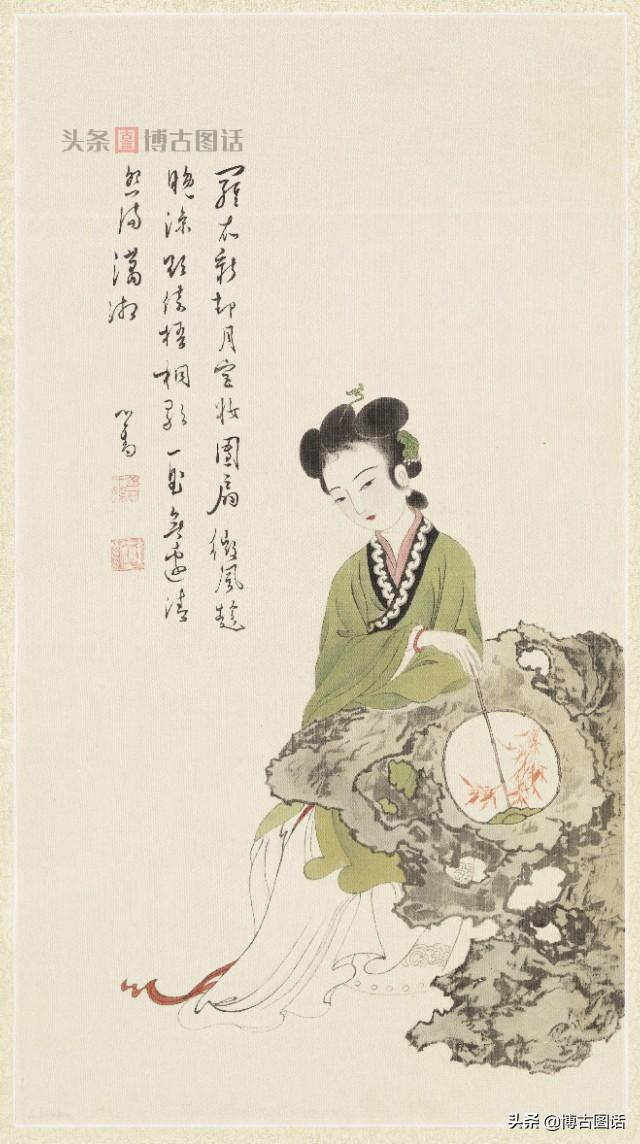 头条 博古图话
羅衣新卸月宮妝團扇微風趁
晚涼倚梧桐一曲無邊清
怨滿瀟湘
心畬
头条 @博古图话